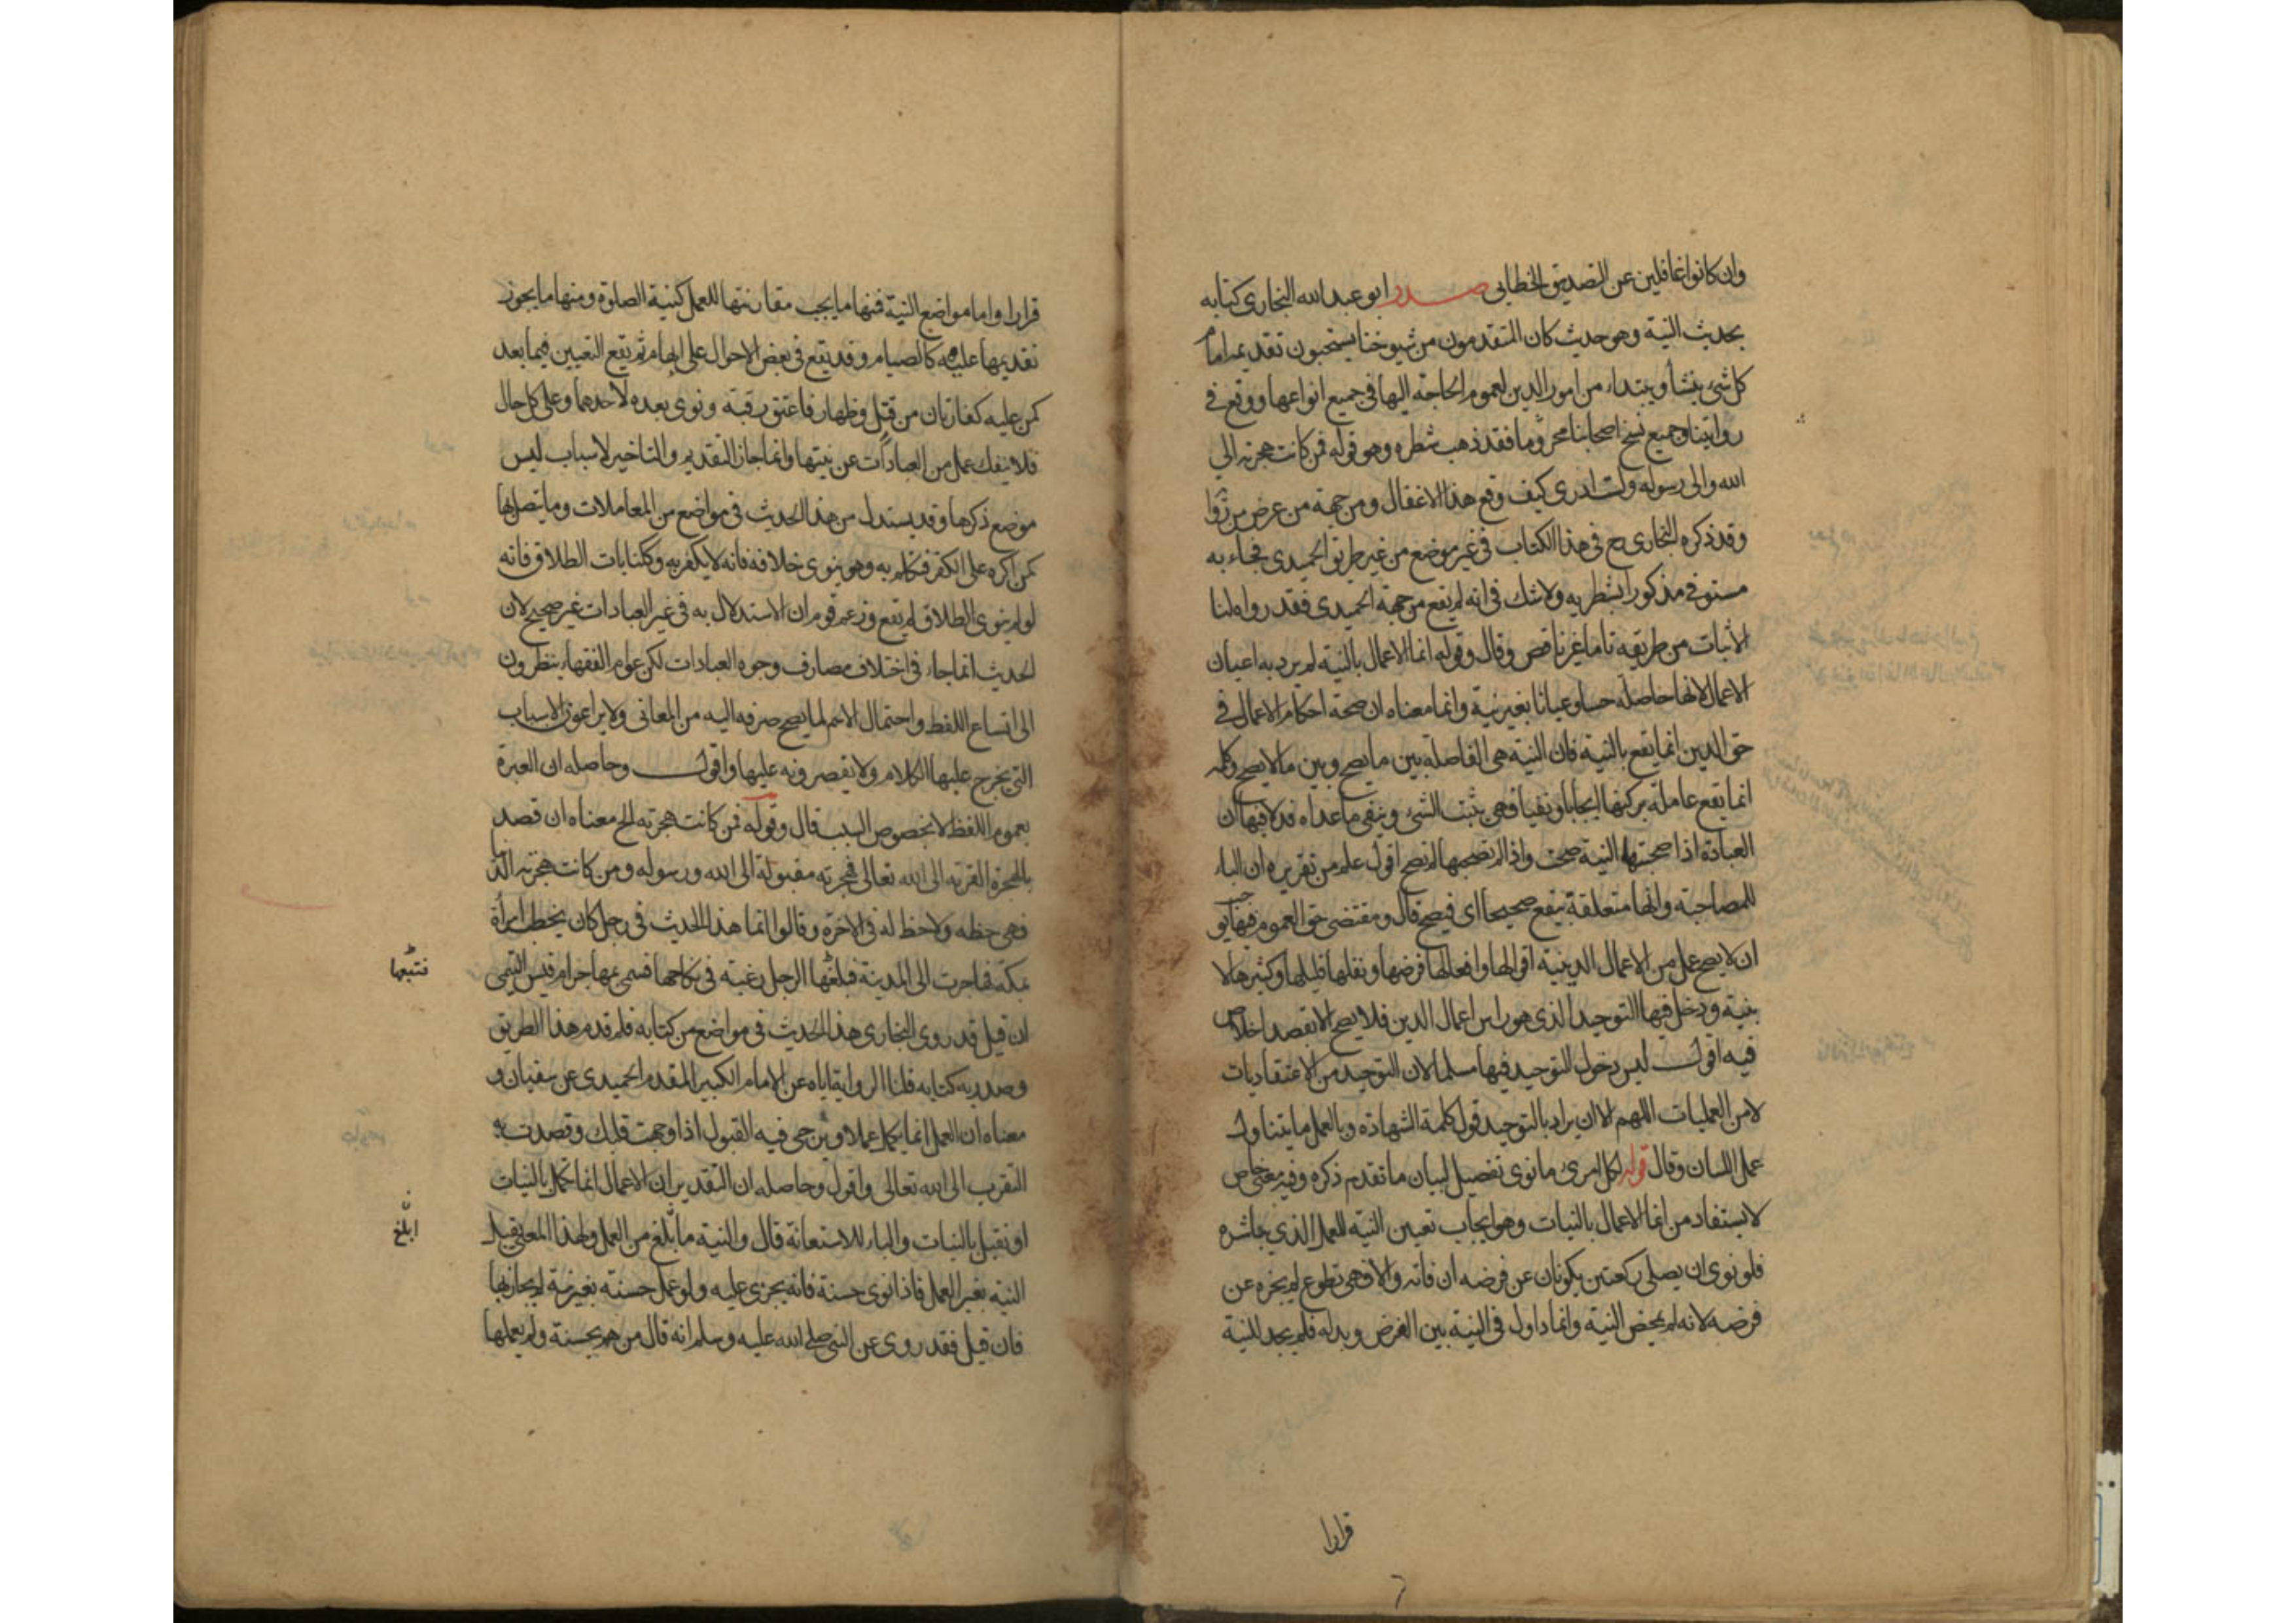 وان كانوا غافلين عن التصديق الخطابي صدر ابو عبد الله البخاري كتابه
بحديث النية وهو حديث كان المتقدمون من شيوخنا يستحبون تقديمه امام
كل شيء ينشأ ويبتداء من امور الدين لعموم الحاجة اليها في جميع انواعها ووقع في
روايتنا وجميع نسخ اصحابنا مخروما فقد ذهب شطره وهو قوله فمن كانت هجرته الى
الله والى رسوله ولست ادري كيف وقع هذا الاغفال ومن جهة من عرض من رواة
وقد ذكره البخاري رح في هذا الكتاب في غير موضع من غير طريق الحميدي فجاء به
مستوفى مذكورا بشطريه ولا شك في انه لم يقع من جهة الحميدي فقد رواه لنا
الاثبات من طريقه تاما غير ناقص وقال وقوله انما الاعمال بالنية لم يرد به اعيان
الاعمال لانها حاصلة حسا وعيانا بغير نية وانما معناه ان صحة احكام الاعمال في
حق الدين انما يقع بالنية فان النية هي الفاصلة بين ما يصح وبين ما لا يصح وكلمة
انما يقع عاملة بركنها ايجابا ونفيا فهي يثبت الشئ وينفي ما عداه فدلالتها ان
العبادة اذا صحبتها النية صحت واذا لم تصحبها لم تصح اقول علم من تقريره ان الباء
للمصاحبة وانها متعلقة بيقع صحيحا اى فيصح قال ومقتضى حق العموم فيها يوجب
ان لا يصح عمل من الاعمال الدينية اقوالها وافعالها فرضها ونفلها قليلها وكثيرها الا
بنية ودخل فيها التوحيد الذي هو راس اعمال الدين فلا يصح الا بقصد اخلاص
فيه اقول ليس دخول التوحيد فيها مسلما لان التوحيد من الاعتقاديات
لا من العمليات اللهم الا ان يراد بالتوحيد قول كلمة الشهادة وبالعمل ما يتناول
عمل اللسان وقال قوله لكل امرئ ما نوى تفصيل لبيان ما تقدم ذكره وفيه معنى خاص
لا يستفاد من انما الاعمال بالنيات وهو ايجاب تعيين النية للعمل الذي يباشره
فلو نوى ان يصلى ركعتين يكونان عن فرضه ان فاته والا فهى تطوع لم يجزه عن
فرضه لانه لم يمحض النية وانما داول في النية بين الفرض وبدله فلم يجد للنية
قرارا
قرارا واما مواضع النية فمنها ما يجب مقارنتها للعمل كنية الصلوة ومنها ما يجوز
تقديمها عليه كالصيام وقد يقع في بعض الاحوال على ابهام ثم يقع التعيين فيما بعد
كمن عليه كفارتان من قتل وظهار فاعتق رقبة ونوى بعده لاحدهما وعلى كل حال
فلا ينفك عمل من العبادات عن نيتها وانما جاز التقديم والتاخير لاسباب ليس
موضع ذكرها وقد يستدل من هذا الحديث في مواضع من المعاملات وما يتصل بها
كمن اكره على الكفر فتكلم به وهو ينوى خلافه فانه لا يكفر به وككنايات الطلاق فانه
لو لم ينوى الطلاق لم يقع وزعم قوم ان الاستدلال به في غير العبادات غير صحيح لان
الحديث انما جاء في اختلاف مصارف وجوه العبادات لكن عوام الفقهاء ينظرون
الى اتساع اللفظ واحتمال الاسم لما يصح صرفه اليه من المعاني ولا يراعون الاسباب
التي يخرج عليها الكلام ولا يقصرونه عليها واقول وحاصله ان العبرة
بعموم اللفظ لا بخصوص السبب قال وقوله فمن كانت هجرته الخ معناه ان قصد
بالهجرة القربة الى الله تعالى فهجرته مقبولة الى الله ورسوله ومن كانت هجرته الى الدنيا
فهى حظه ولا حظ له في الاخرة وقالوا انما هذا الحديث في رجل كان يخطب امرأة
بمكة فهاجرت الى المدينة فبلغها الرجل رغبة في نكاحها فسمى مهاجر ام قيس التيمى
فتبعها
ان قيل قد روى البخاري هذا الحديث في مواضع من كتابه فلم قدم هذا الطريق
وصدر به كتابه قلنا الرواية اياه عن الامام الكبير المقدم الحميدي عن سفيان و
معناه ان العمل انما يكمل عملا ويرجى فيه القبول اذا وجهت قلبك وقصدت به
التقرب الى الله تعالى واقول وحاصله ان التقدير ان الاعمال انما تكمل بالنيات
او تقبل بالنيات والباء للاستعانة قال والنية ما بلغ من العمل ولهذا المعنى يقبل
ابلغ
النية بغير العمل فاذا نوى حسنة فانه يجزى عليه ولو عمل حسنة بغير نية لم يجاز بها
فان قيل فقد روى عن النبى صلى الله عليه وسلم انه قال من هم بحسنة ولم يعملها